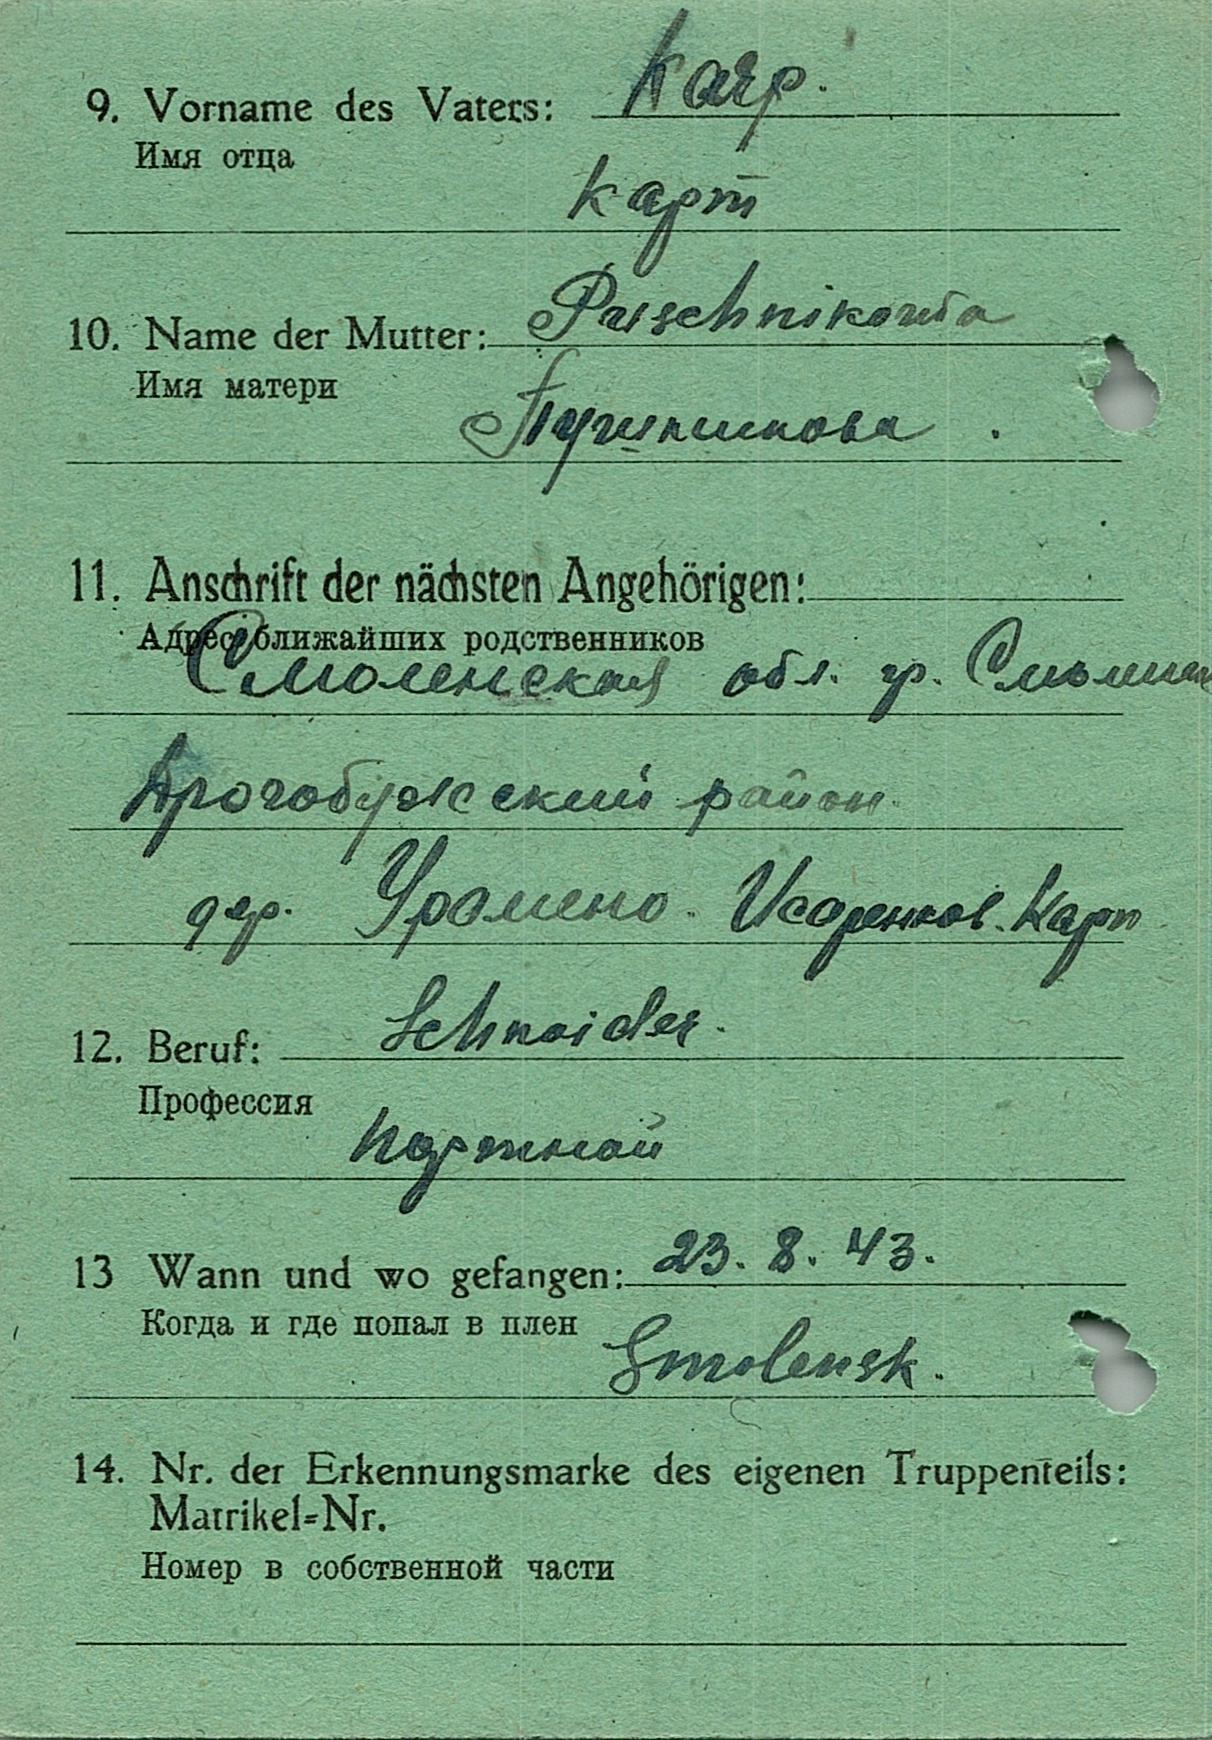 9. Vorname des Vaters: Karp.
Имя отца
Карп
10. Name der Mutter: Puschnikowa
Имя матери
Пушникова .
11. Anschrift der nächsten Angehörigen:
Адрес ближайших родственников
Смоленская обл. гр.
район
дер. Карп
12. Beruf: Schneider.
Профессия
Портной
13 Wann und wo gefangen: 23. 8. 43.
Когда и где попал в плен
Smolensk.
14. Nr. der Erkennungsmarke des eigenen Truppenteils:
Matrikel=Nr.
Номер в собственной части